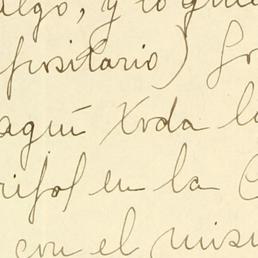 algo, y lo que
positario) Jo
aquín Xoda la
rifol en la C
con el mism